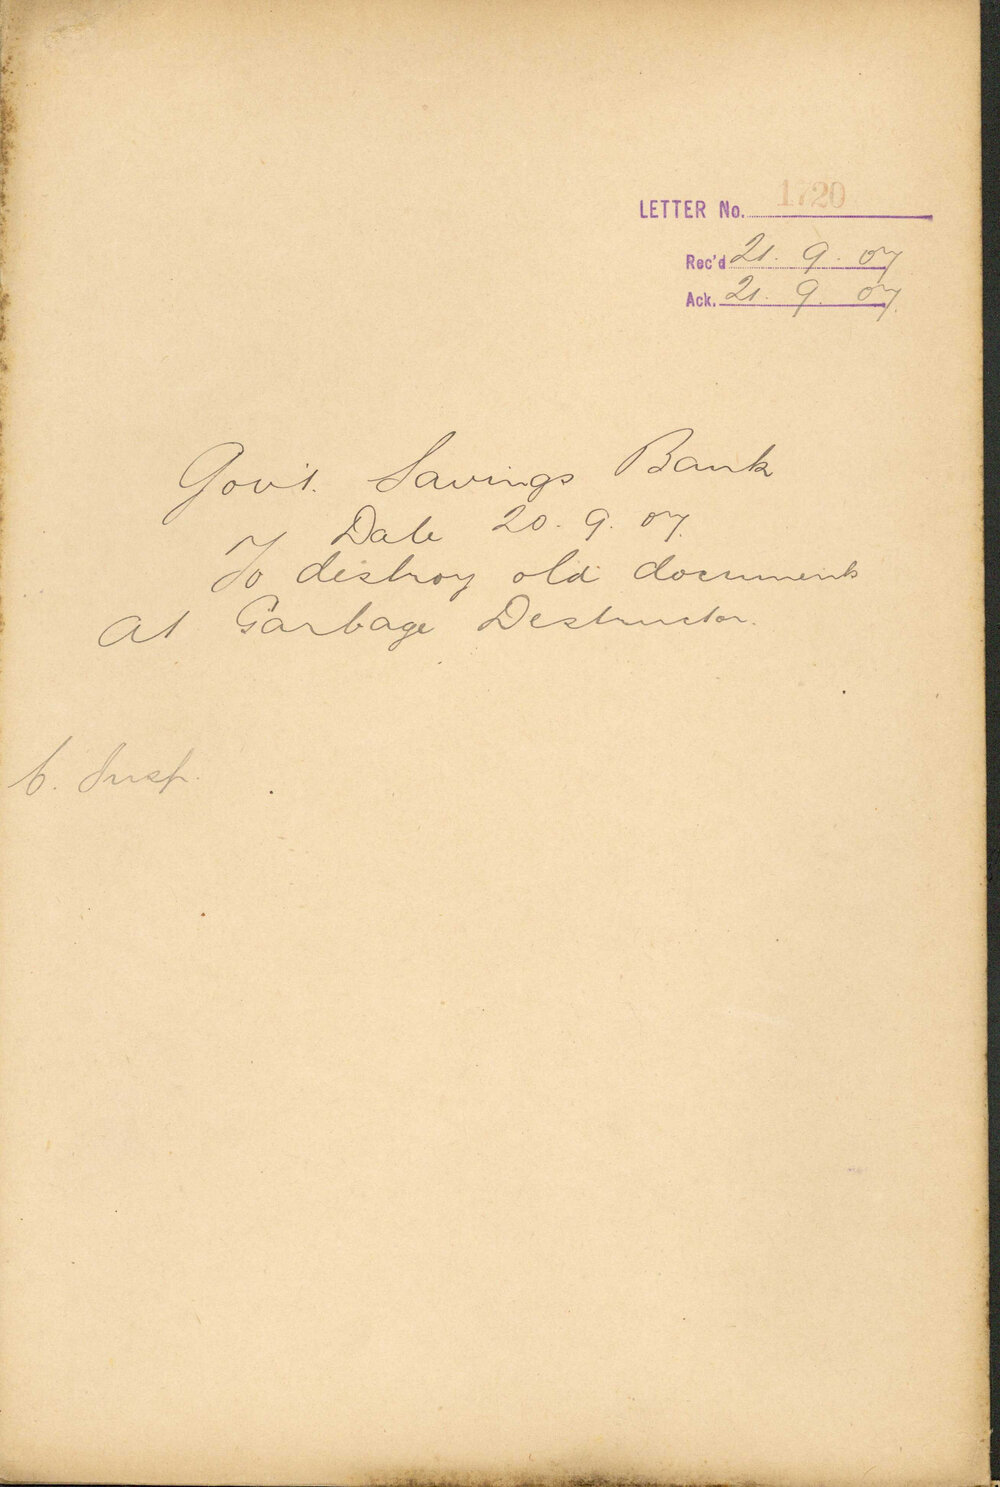 LETTER No. 1720
Rec'd 21. 9. 07
Ack. 21. 9. 07.
Gov't. Savings Bank
Date 20. 9. 07.
To destroy old documents
At Garbage Destructor.
C. Insp.